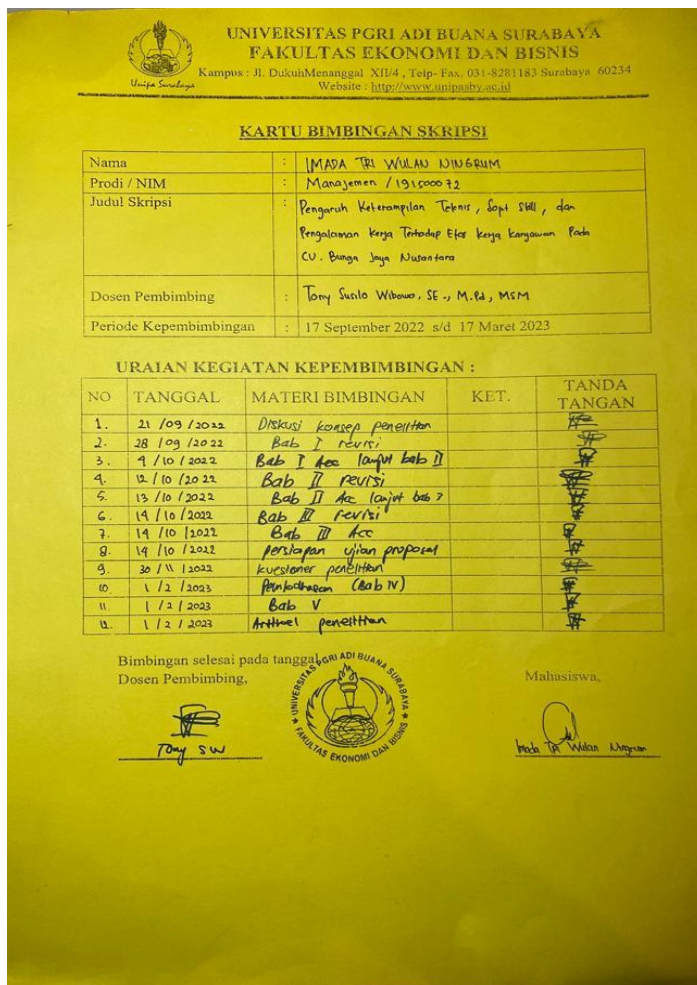 UNIVERSITAS PGRI ADI BUANA SURABAYA
FAKULTAS EKONOMI DAN BISNIS
Kampus : Jl. DukuhMenanggal XII/4 , Telp- Fax. 031-8281183 Surabaya 60234
Website : http://www.unipasby.ac.id
Unipa Surabaya
KARTU BIMBINGAN SKRIPSI
Nama : IMADA TRI WULAN NINGRUM
Prodi / NIM : Manajemen / 191500072
Judul Skripsi : Pengaruh Keterampilan Teknis, Sopt Skill, dan
Pengalaman Kerja Terhadap Etos Kerja Karyawan Pada
CV. Bunga Jaya Nusantara
Dosen Pembimbing : Tony Susilo Wibowo, SE., M.Pd, MSM
Periode Kepembimbingan : 17 September 2022 s/d 17 Maret 2023
URAIAN KEGIATAN KEPEMBIMBINGAN :
NO TANGGAL MATERI BIMBINGAN KET. TANDA TANGAN
1. 21 /09 /2022 Diskusi konsep penelitian
2. 28 /09 /2022 Bab I revisi
3. 9 /10 /2022 Bab I Acc lanjut bab II
4. 12 /10 /2022 Bab II revisi
5. 13 /10 /2022 Bab II Acc lanjut bab 3
6. 14 /10 /2022 Bab III revisi
7. 14 /10 /2022 Bab III Acc
8. 14 /10 /2022 persiapan ujian proposal
9. 30 /11 /2022 kuesioner penelitian
10 1 /2 /2023 Pembahasan (Bab IV)
11. 1 /2 /2023 Bab V
12. 1 /2 /2023 Artikel penelitian
Bimbingan selesai pada tanggal
Dosen Pembimbing, Mahasiswa,
UNIVERSITAS PGRI ADI BUANA SURABAYA
FAKULTAS EKONOMI DAN BISNIS
Tony SW Imada Tri Wulan Ningrum